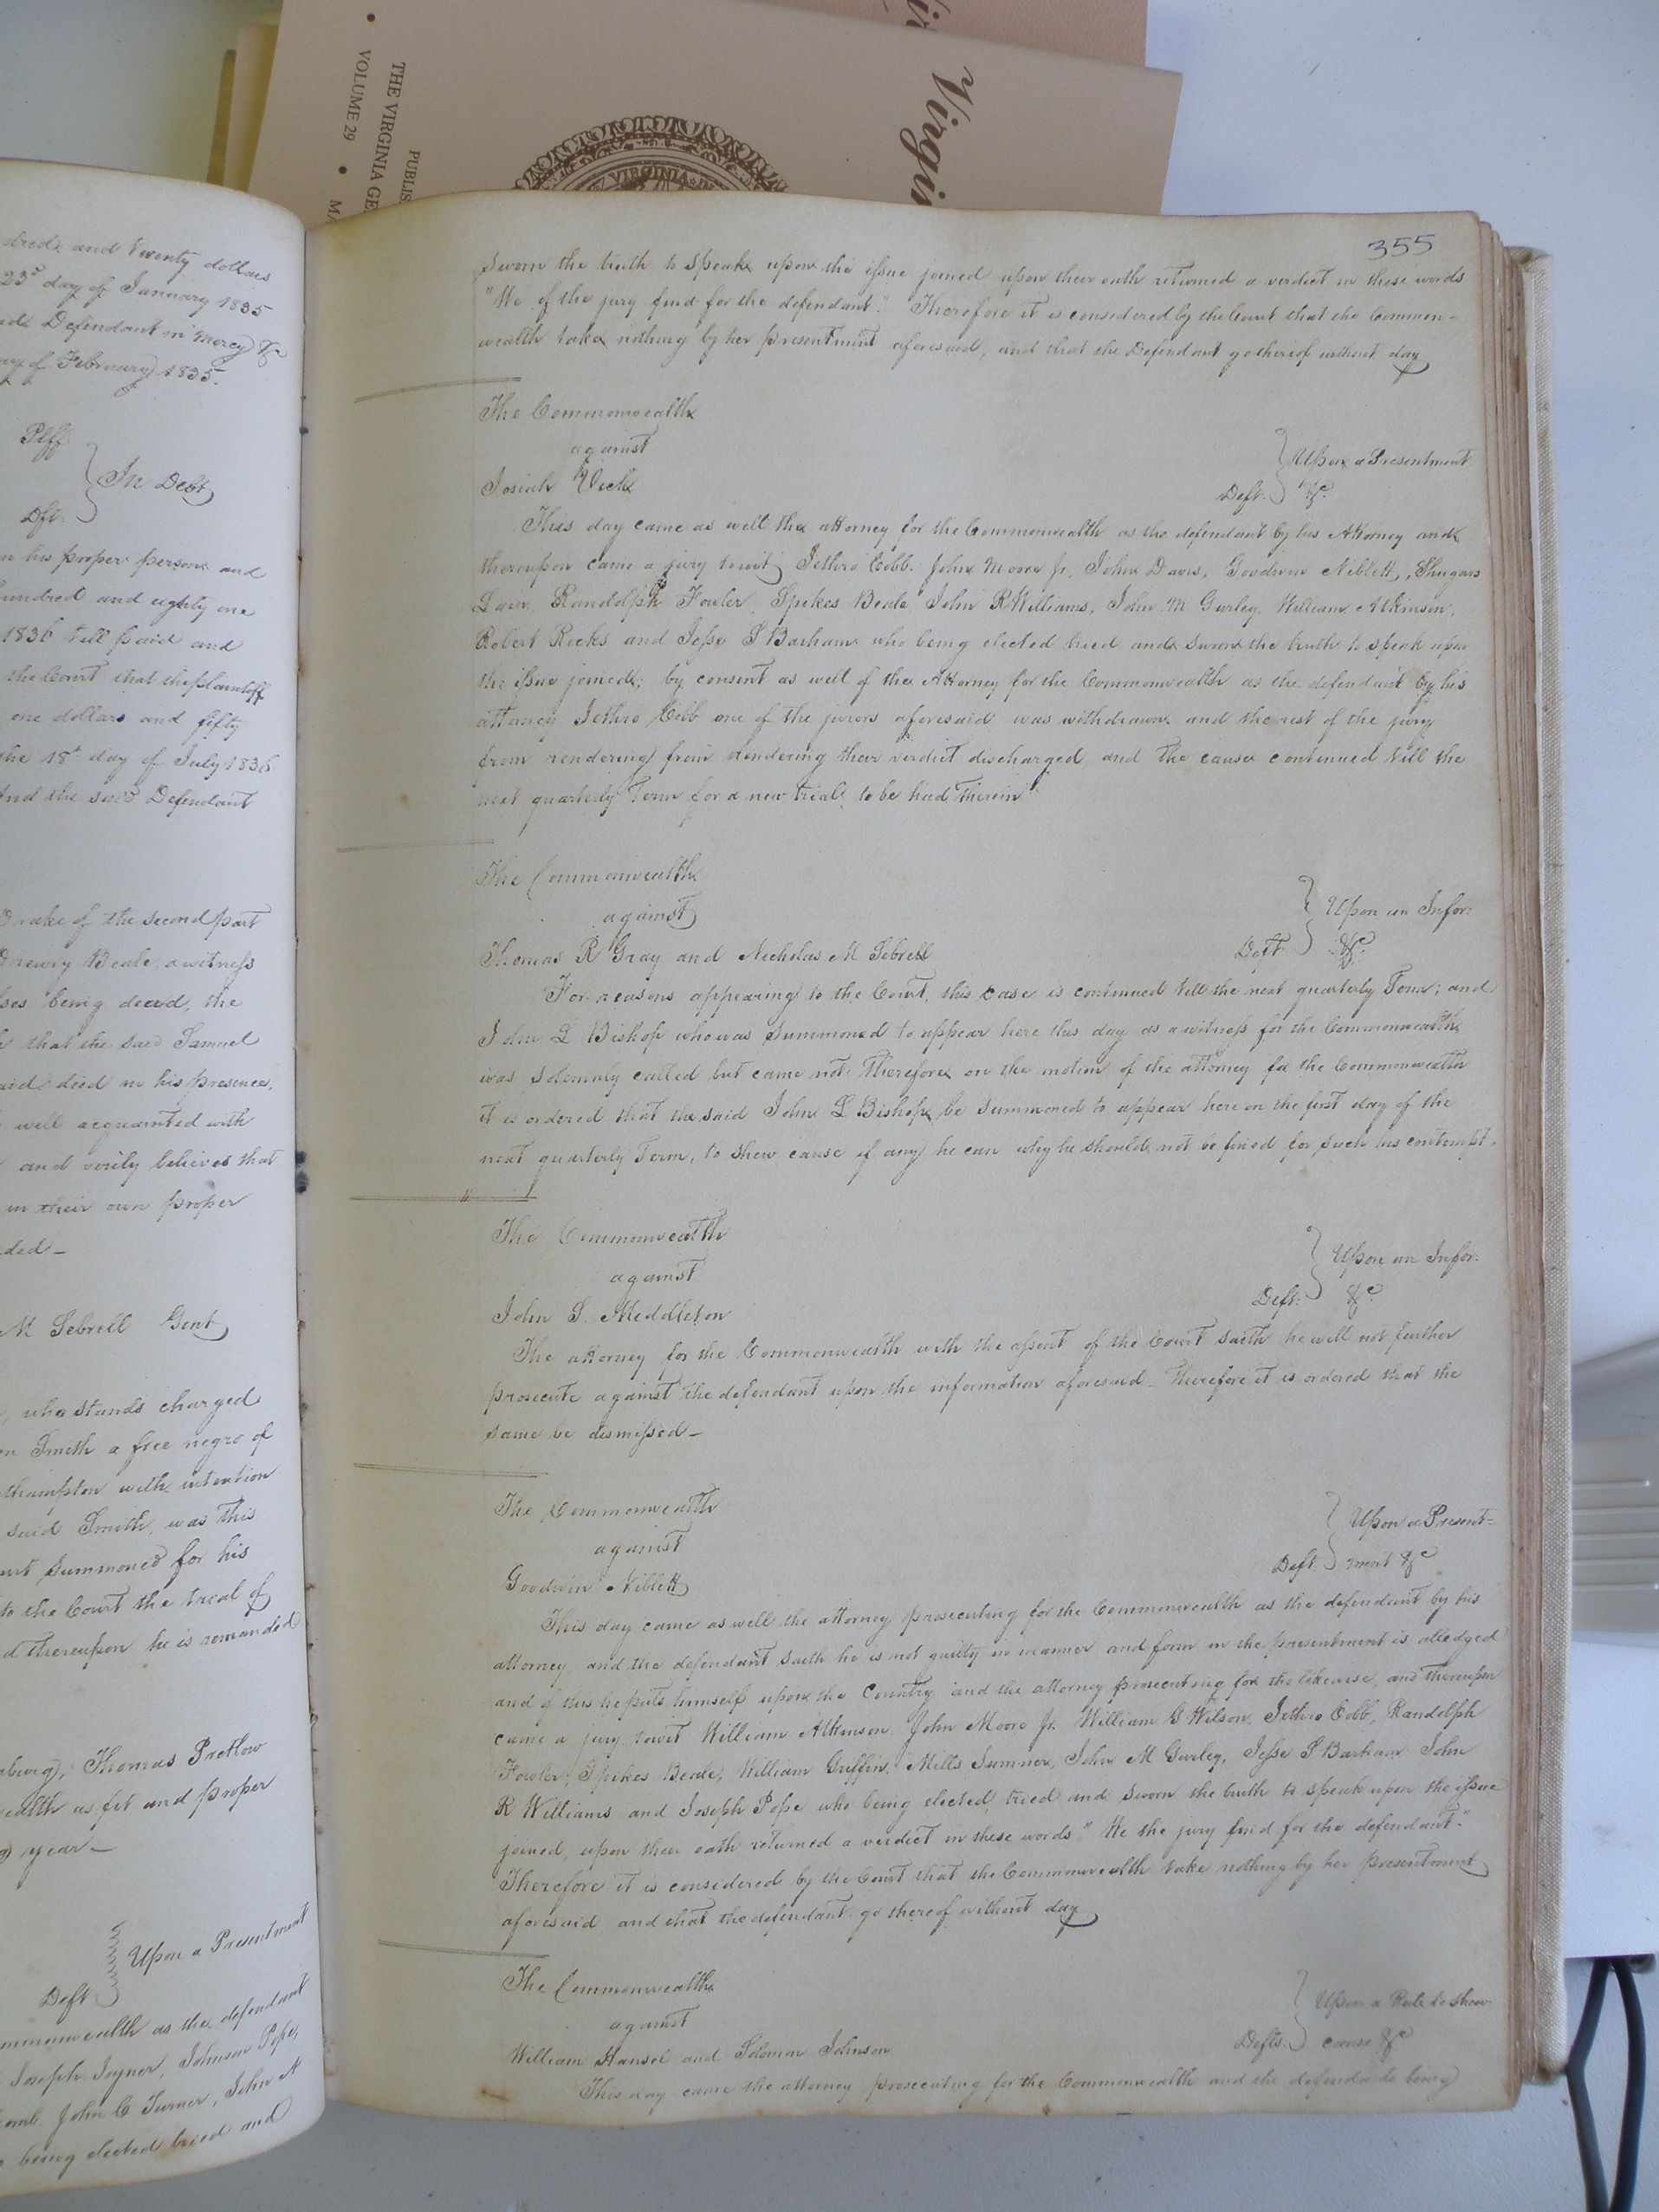 Virgin
THE VIRGINIA GE
VOLUME 29
PUBLIS
MA
VIRGINIA
dred and twenty dollars
23d day of January 1835
Defendant in mercy &c
of February 1835.
Plff
In Debt
Dft.
his proper person and
hundred and eighty one
1836 till paid and
the Court that the plaintiff
one dollars and fifty
the 18t day of July 1836
And the said Defendant
Drake of the second part
Drewry Beale, a witness
being dead, the
that the said Samuel
deed in his presence,
well acquainted with
and verily believes that
in their own proper
ded _
M Sebrell Gent
, who stands charged
Smith a free negro of
thampton with intention
said Smith, was this
summoned for his
to the Court the trial of
d thereupon he is remanded
sburg), Thomas Pretlow
wealth as fit and proper
year _
Upon a Presentment
Deft
mmonwealth as the defendant
Joseph Joyner, Johnson Pope,
John C Turner, John N
being elected tried and
355
Sworn the truth to speak upon the issue joined upon their oath returned a verdict in these words
"We of the jury find for the defendant." Therefore it is considered by the Court that the Common-
wealth take nothing by her presentment aforesaid, and that the Defendant go thereof without day
The Commonwealth
against
Upon a Presentment
Josiah Vick
Deft. &c.
This day came as well the attorney for the Commonwealth as the defendant by his Attorney and
thereupon came a jury towit Jethro Cobb. John Moore Jr, John Davis, Goodwin Niblett, Shugars
Lain, Randolph Fowler, Spikes Beale John R Williams, John M Gurley, William Atkinson,
Robert Ricks and Jesse S Barham who being elected tried and sworn the truth to speak upon
the issue joined; by consent as well of the Attorney for the Commonwealth as the defendant by his
attorney Jethro Cobb one of the jurors aforesaid was withdrawn and the rest of the jury
from rendering from rendering their verdict discharged, and the cause continued till the
next quarterly Term for a new trial to be had therein
The Commonwealth
against
Upon an Infor:
Thomas R Gray and Nicholas M Sebrell
Deft &c.
For reasons appearing to the Court, this case is continued till the next quarterly Term; and
John L Bishop who was summoned to appear here this day as a witness for the Commonwealth
was solemnly called but came not: Therefore on the motion of the attorney for the Commonwealth
it is ordered that the said John L Bishop be summoned to appear here on the first day of the
next quarterly Term, to shew cause if any he can why he should not be fined for such his contempt.
The Commonwealth
against
Upon an Infor:
John S. Middleton
Deft: &c.
The attorney for the Commonwealth with the assent of the Court saith he will not further
prosecute against the defendant upon the information aforesaid _ Therefore it is ordered that the
same be dismissed _
The Commonwealth
against
Upon a Present-
Goodwin Niblett
Deft. ment &c
This day came as well the attorney prosecuting for the Commonwealth as the defendant by his
attorney, and the defendant saith he is not guilty in manner and form in the presentment is alledged
and of this he puts himself upon the Country and the attorney prosecuting for the likewise, and thereupon
came a jury towit William Atkinson John Moore Jr. William G Wilson, Jethro Cobb, Randolph
Fowler, Spikes Beale, William Griffin, Mills Sumner, John M Gurley, Jesse S Barham John
R Williams and Joseph Pope who being elected, tried and sworn the truth to speak upon the issue
joined, upon their oath returned a verdict in these words "We the jury find for the defendant."
Therefore it is considered by the Court that the Commonwealth take nothing by her presentment
aforesaid, and that the defendant go thereof without day
The Commonwealth
against
Upon a Rule to show
William Hansel and Solomon Johnson
Defts. cause &c
This day came the attorney prosecuting for the Commonwealth and the defendants being